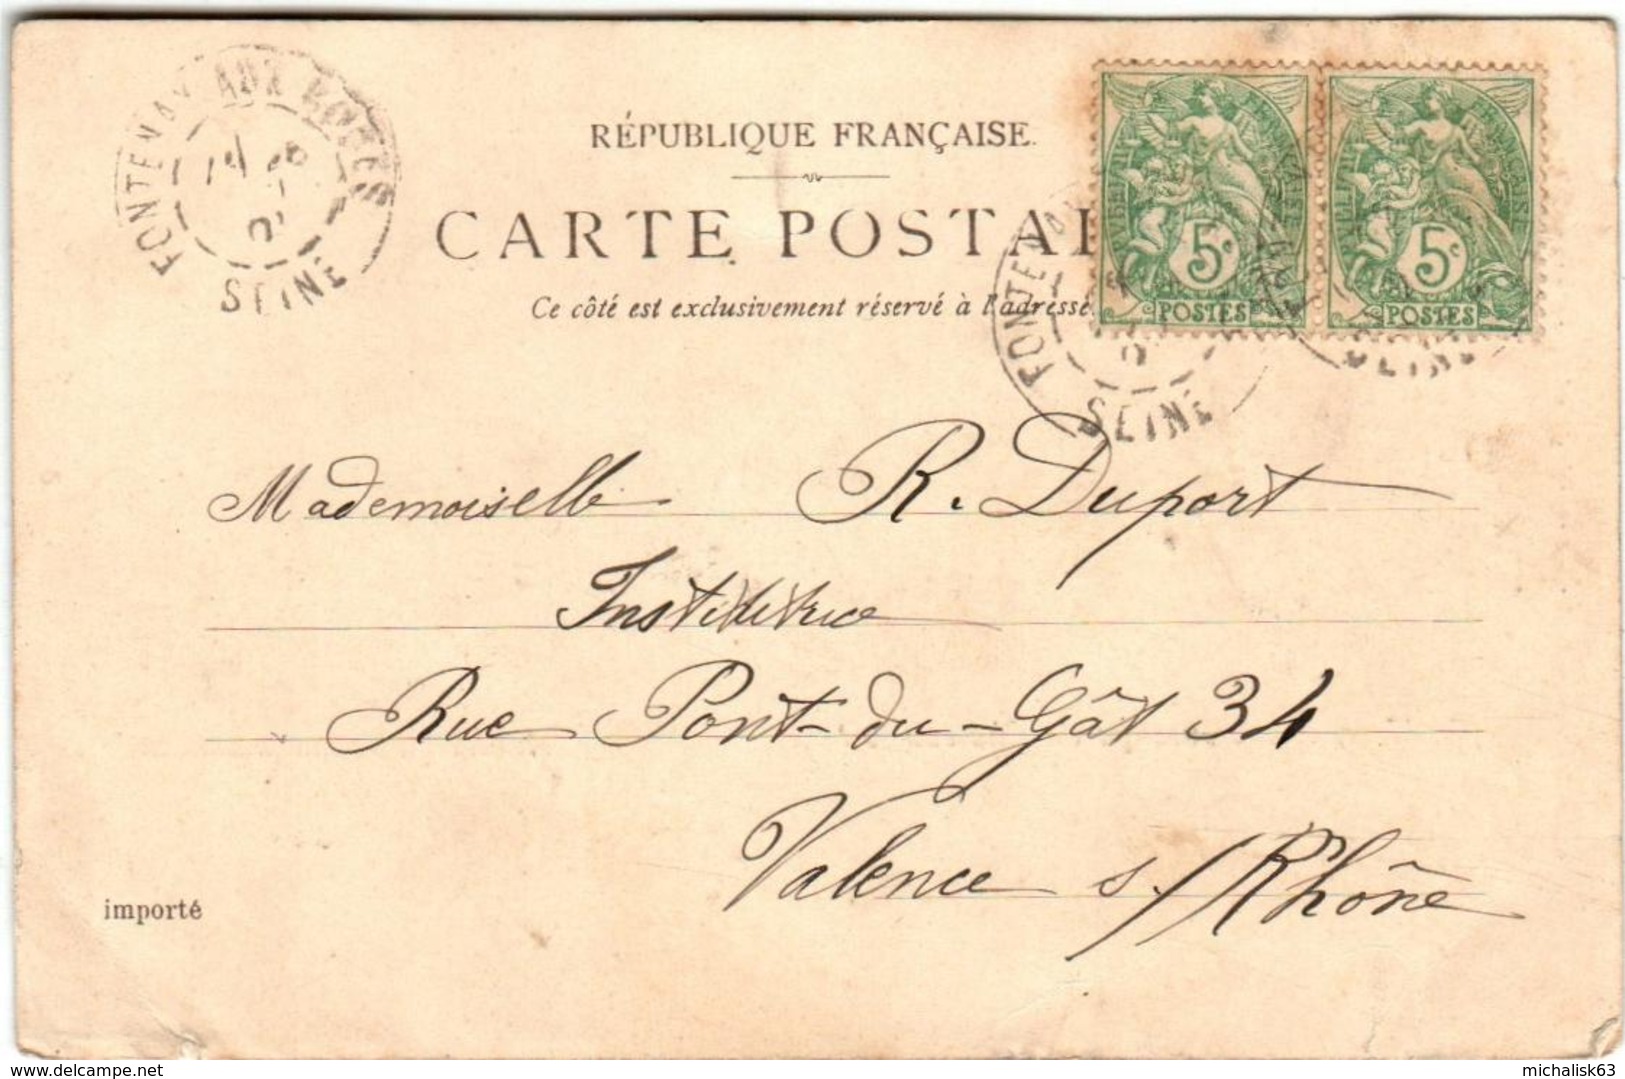 FONTENAY AUX ROSES
SEINE
RÉPUBLIQUE FRANÇAISE.
CARTE POSTAL
Ce côté est exclusivement réservé à l'adresse.
5c
POSTES
5c
POSTES
SEINE
SEINE
Mademoiselle R. Duport
Institutrice
Rue Pont-du-Gât 34
Valence s/Rhône
importé
www.delcampe.net
michalisk63